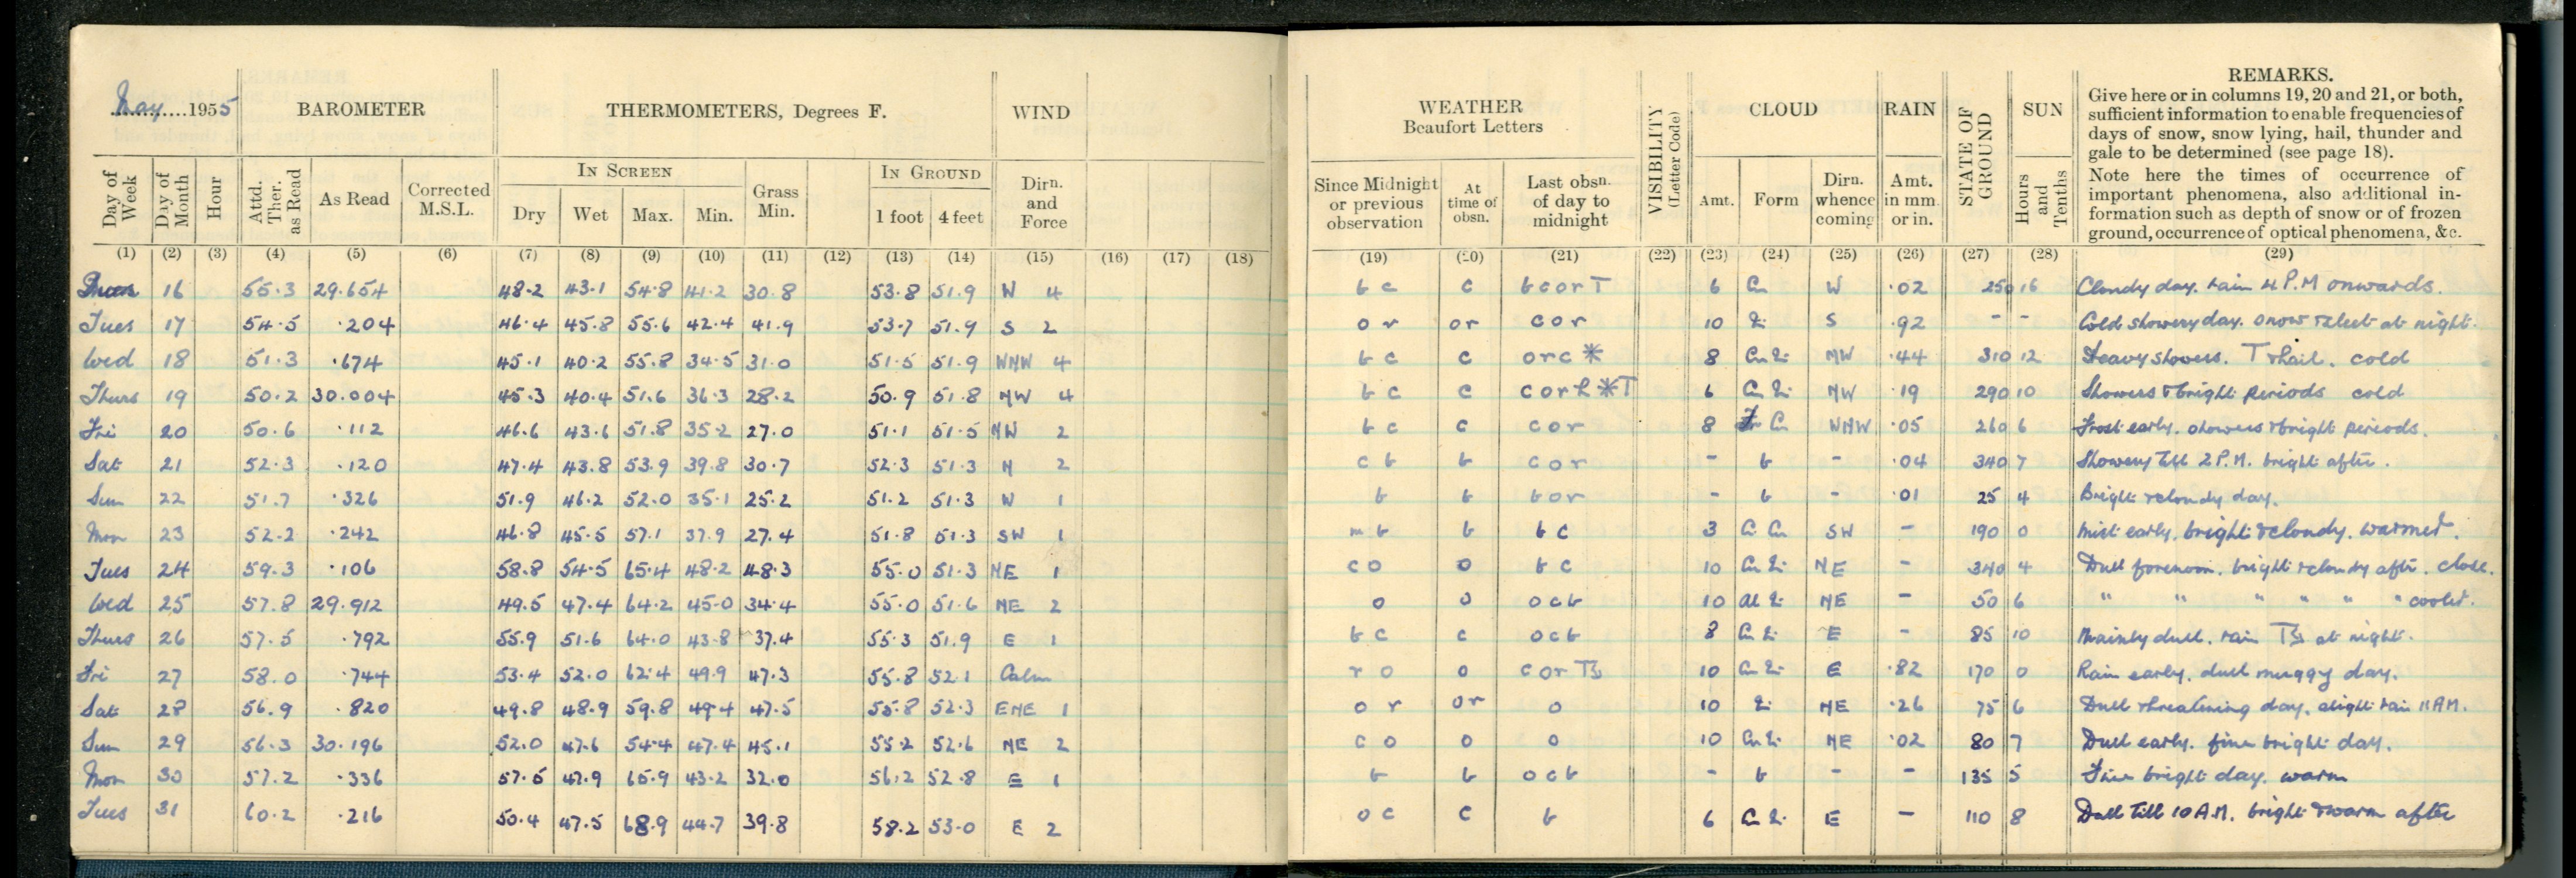 May 1955 BAROMETER THERMOMETERS, Degrees F. WIND
Day of Week Day of Month Hour Attd. Ther. as Read As Read Corrected M.S.L. IN SCREEN Dry Wet Max. Min. Grass Min. IN GROUND 1 foot 4 feet Dirn. and Force
(1) (2) (3) (4) (5) (6) (7) (8) (9) (10) (11) (12) (13) (14) (15) (16) (17) (18)
16 55.3 29.654 48.2 43.1 54.8 41.2 30.8 53.8 51.9 W 4
Tues 17 54.5 .204 46.4 45.8 55.6 42.4 41.9 53.7 51.9 S 2
Wed 18 51.3 .674 45.1 40.2 55.8 34.5 31.0 51.5 51.9 WNW 4
Thurs 19 50.2 30.004 45.3 40.4 51.6 36.3 28.2 50.9 51.8 NW 4
Fri 20 50.6 .112 46.6 43.6 51.8 35.2 27.0 51.1 51.5 NW 2
Sat 21 52.3 .120 47.4 43.8 53.9 39.8 30.7 52.3 51.3 N 2
Sun 22 51.7 .326 51.9 46.2 52.0 35.1 25.2 51.2 51.3 W 1
Mon 23 52.2 .242 46.8 45.5 57.1 37.9 27.4 51.8 51.3 SW 1
Tues 24 59.3 .106 58.8 54.5 65.4 48.2 48.3 55.0 51.3 NE 1
Wed 25 57.8 29.912 49.5 47.4 64.2 45.0 34.4 55.0 51.6 NE 2
Thurs 26 57.5 .792 55.9 51.6 64.0 43.8 37.4 55.3 51.9 E 1
Fri 27 58.0 .744 53.4 52.0 62.4 49.9 47.3 55.8 52.1 Calm
Sat 28 56.9 .820 49.8 48.9 59.8 49.4 47.5 55.8 52.3 ENE 1
Sun 29 56.3 30.196 52.0 47.6 54.4 47.4 45.1 55.2 52.6 NE 2
Mon 30 57.2 .336 57.5 47.9 65.9 43.2 32.0 56.2 52.8 E 1
Tues 31 60.2 .216 50.4 47.5 68.9 44.7 39.8 58.2 53.0 E 2
WEATHER Beaufort Letters VISIBILITY (Letter Code) CLOUD RAIN STATE OF GROUND SUN REMARKS.
Give here or in columns 19, 20 and 21, or both,
sufficient information to enable frequencies of
days of snow, snow lying, hail, thunder and
gale to be determined (see page 18).
Note here the times of occurrence of
important phenomena, also additional in-
formation such as depth of snow or of frozen
ground, occurrence of optical phenomena, &c.
Since Midnight or previous observation At time of obsn. Last obsn. of day to midnight Amt. Form Dirn. whence coming Amt. in mm. or in. Hours and Tenths
(19) (20) (21) (22) (23) (24) (25) (26) (27) (28) (29)
b c c b c o r T 6 Cu W .02 250 16 Cloudy day. rain 4 P.M onwards.
o r o r c o r 10 S .92 - - Cold showery day. snow & sleet at night.
b c c o r c * 8 Cu NW .44 310 12 Heavy showers. T & hail. cold
b c c c o r h * T 6 Cu NW .19 290 10 Showers & bright periods cold
b c c c o r 8 Cu WNW .05 260 6 Frost early. showers & bright periods.
c b b c o r - b - .04 340 7 Showery till 2 P.M. bright after.
b b b o r - b - .01 25 4 Bright & cloudy day.
m b b b c 3 Ci Cu SW - 190 0 Mist early. bright & cloudy. warmer.
c o o b c 10 Cu NE - 340 4 Dull forenoon. bright & cloudy after. close.
o o o c b 10 NE - 50 6 " " " " " " cooler.
b c c o c b 8 Cu E - 85 10 Mainly dull. rain at night.
r o o c o r 10 Cu E .82 170 0 Rain early. dull muggy day.
o r o r o 10 NE .26 75 6 Dull threatening day. slight rain 11 AM.
c o o o 10 Cu NE .02 80 7 Dull early. fine bright day.
b b o c b - b - - 135 5 Fine bright day. warm
o c c b 6 E - 110 8 Dull till 10 A.M. bright & warm after